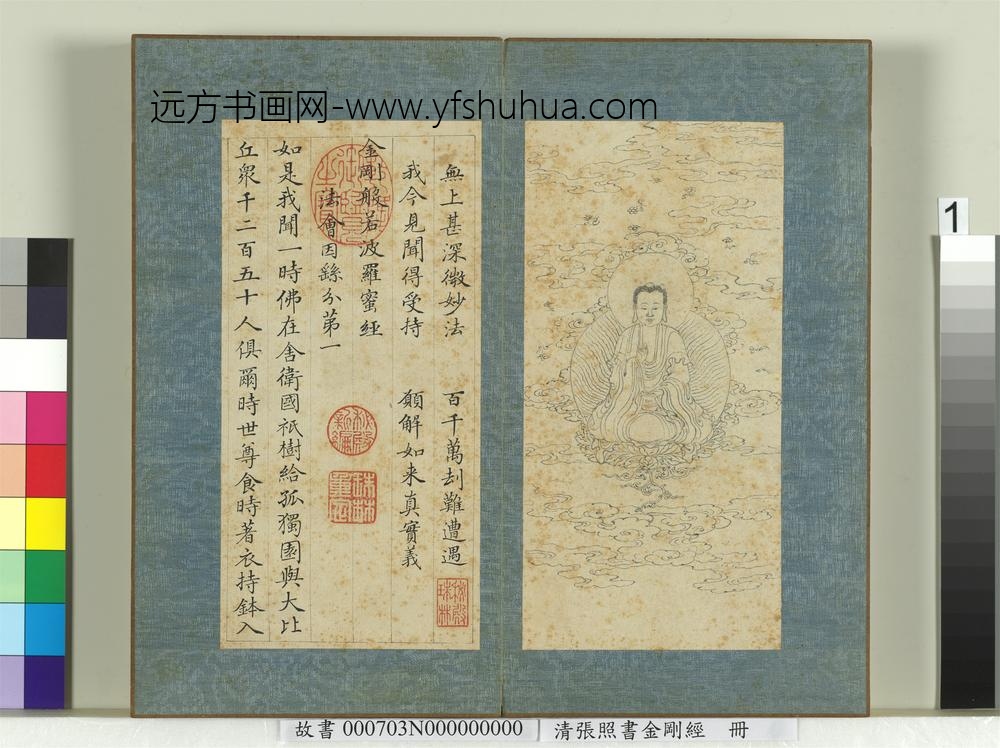 远方书画网-www.yfshuhua.com
無上甚深微妙法 百千萬刦難遭遇
我今見聞得受持 願解如来真實義
金剛般若波羅蜜經
法會因繇分第一
如是我聞一時佛在舍衛國祇樹給孤獨園與大比
丘眾千二百五十人俱爾時世尊食時著衣持鉢入
1
故書 000703N000000000 清張照書金剛經 冊